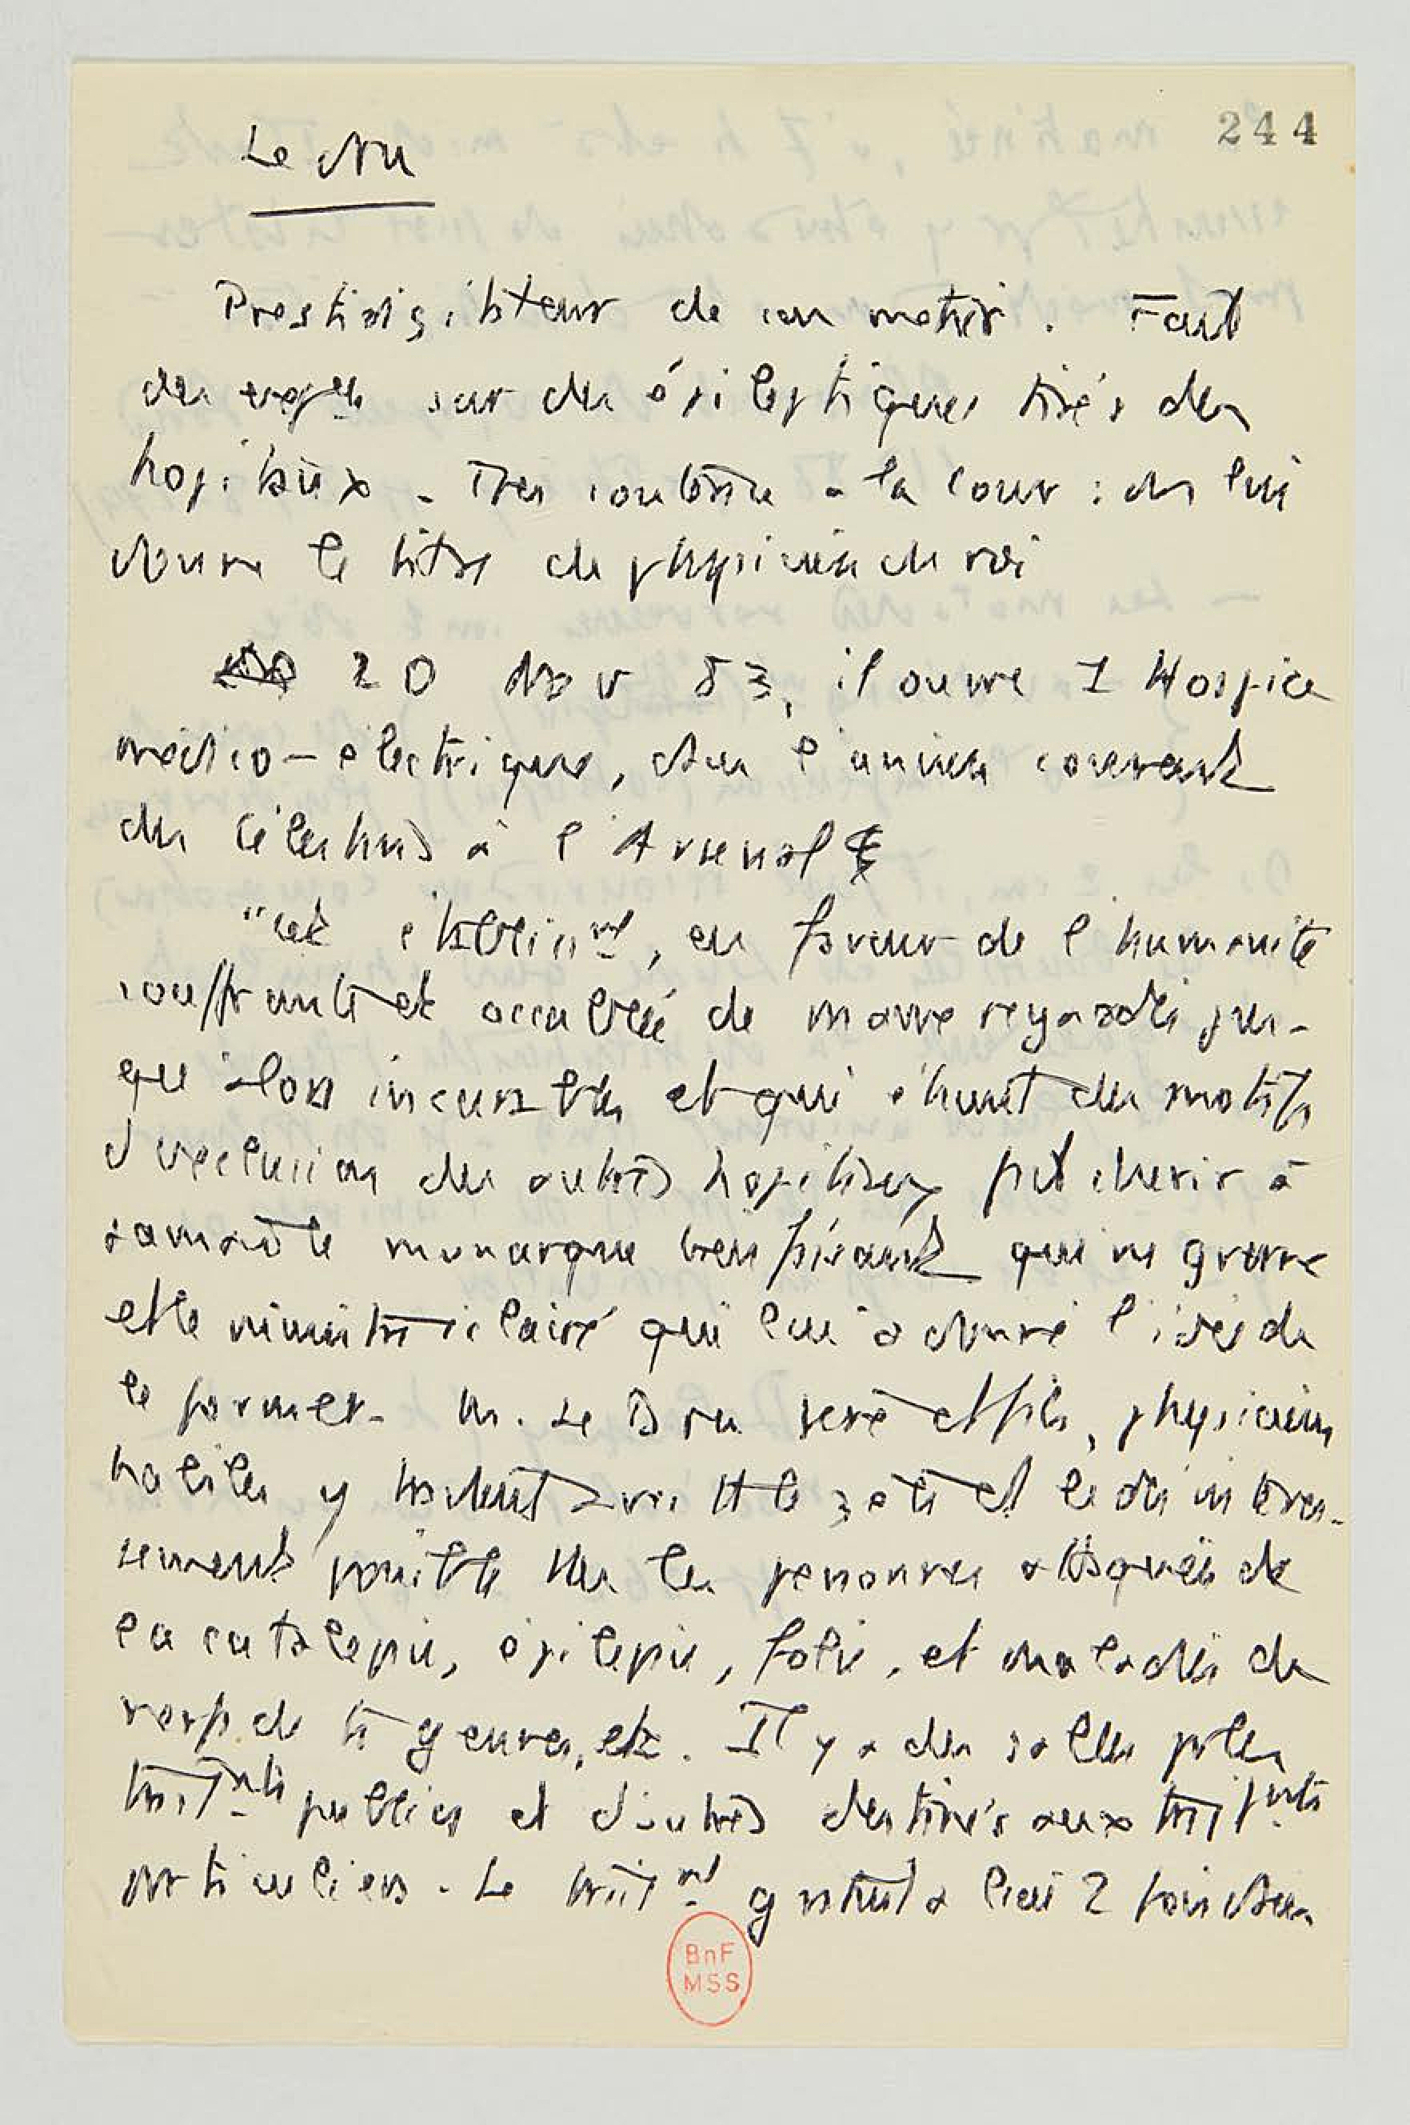 244
Le Dru
Prestidigitateur de son métier. Fait
des expér sur des épileptiques tirés des
hopitaux. Très soutenu à la Cour : on lui
donne le titre de physicien du roi
20 Nov 83, il ouvre 1 Hospice
médico-électrique, dans l'ancien couvent
des Célestins à l'Arsenal
"cet établissmt, en faveur de l'humanité
souffrante et accablée de maux regardés jus-
qu'alors incurables et qui étaient des motifs
d'exclusion des autres hopitaux fait chérir à
la monarque bienfaisant qui ns gouverne
et le ministre éclairé qui lui a donné l'idée de
le former. M. Le Dru père et fils, physiciens
habiles y traitent avec tt le zèle et le désintéres-
sement possible ttes les personnes attaquées de
la catalepsie, épilepsie, folie, et maladies de
nerfs de ts genres, etc. Il y a des salles pr les
traitmts publics et d'autres destinés aux traitmts
particuliers. Le traitmt gratuit a lieu 2 fois dans
BnF
MSS